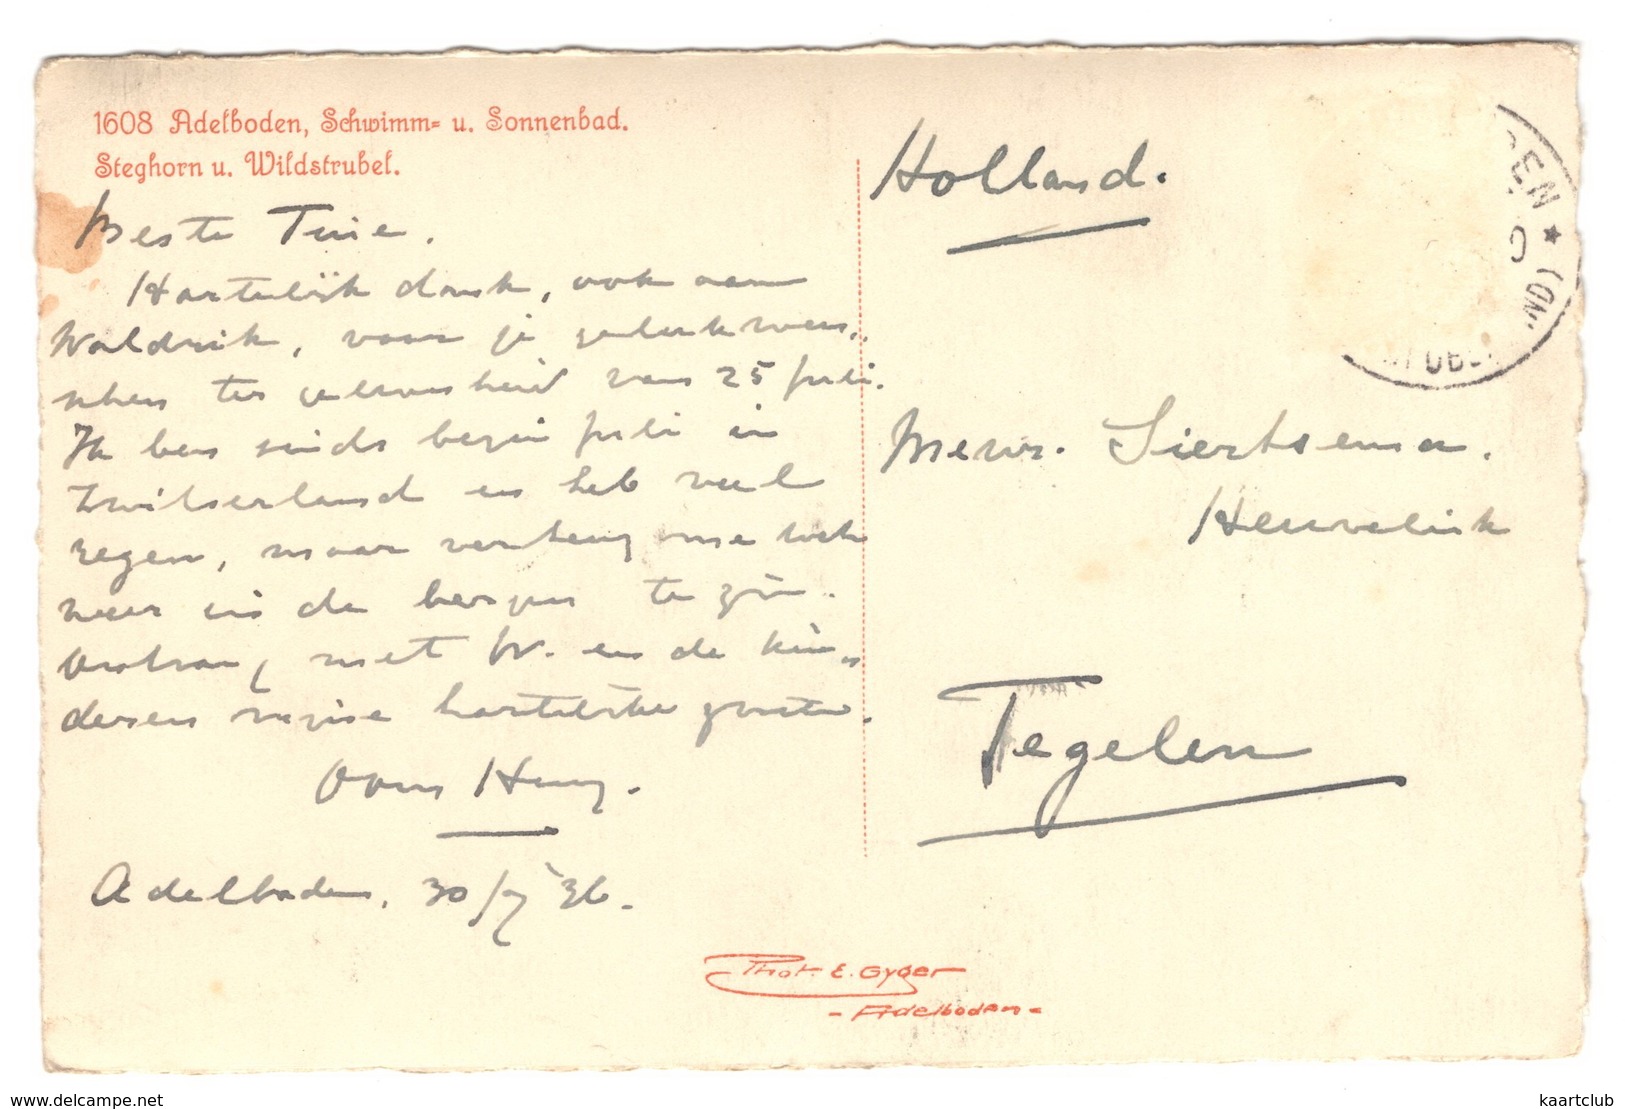 1608 Adelboden, Schwimm= u. Sonnenbad.
Steghorn u. Wildstrubel.
Beste Tine.
Hartelijk dank, ook aan
Waldrik, voor je gelukwen-
schen ter gelegenheid van 25 Juli.
Ik ben sinds begin juli in
Zwitserland en heb veel
regen, maar verheug me toch
weer in de bergen te zijn.
met W. en de kin-
deren mijne hartelijke groeten.
Oom
Adelboden, 30/7 '36.
Holland.
Mevr. Siertsema.
Heuvelink
Tegelen
DEN ★ (
Phot. E. Gyger
- Adelboden -
www.delcampe.net
kaartclub